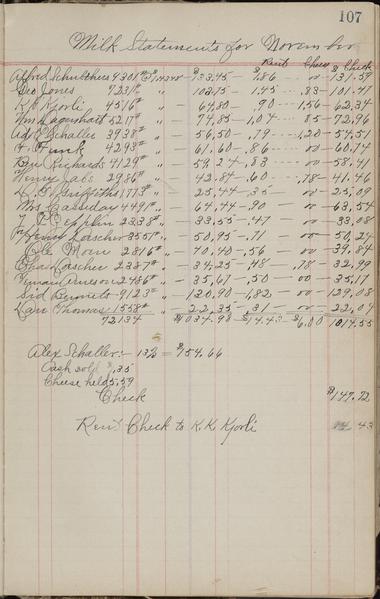 107
Milk Statements for November
Rent Cheese Check
Alfred Schulthess 9301# @ 1.43 1/2 133.45 – 1.86 – 00 – 131.59
Geo Jones 7231# " – 103.75 – 1.45 – .83 – 101.47
K. K. Kjorli 4516# " – 64.80 – .90 – 1.56 – 62.34
Wm 5217# " – 74.85 – 1.04 – .85 – 72.96
Ad. Schaller 3938# " – 56.50 – .79 – 1.20 – 54.51
H. Funk 4293# " – 61.60 – .86 – 00 – 60.74
Ben Richards 4129# " – 59.24 – .83 – 00 – 58.41
Henry 2986# " – 42.84 – .60 – .78 – 41.46
Griffiths 1773# " – 25.44 – .35 – 00 – 25.09
Mrs Cassiday 4491# " – 64.44 – .90 – 00 – 63.54
2338# " – 33.55 – .47 – 00 – 33.08
3551# " – 50.95 – .71 – 00 – 50.24
Ole 2816# " – 40.40 – .56 – 00 – 39.84
Chas 2387# " – 34.25 – .48 – .78 – 32.99
2486# " – 35.67 – .50 – 00 – 35.17
Sid Bennett 9123# " – 130.90 – 1.82 – 00 – 129.08
Thomas 1558# " – 22.35 – .31 – 00 – 22.04
72134 $1034.98 $14.43 $6.00 1014.55
Alex Schaller:– 13% = $154.66
Cash sold $1.35
Cheese held 5.59
Check $147.72
Rent Check to K. K. Kjorli 14.43